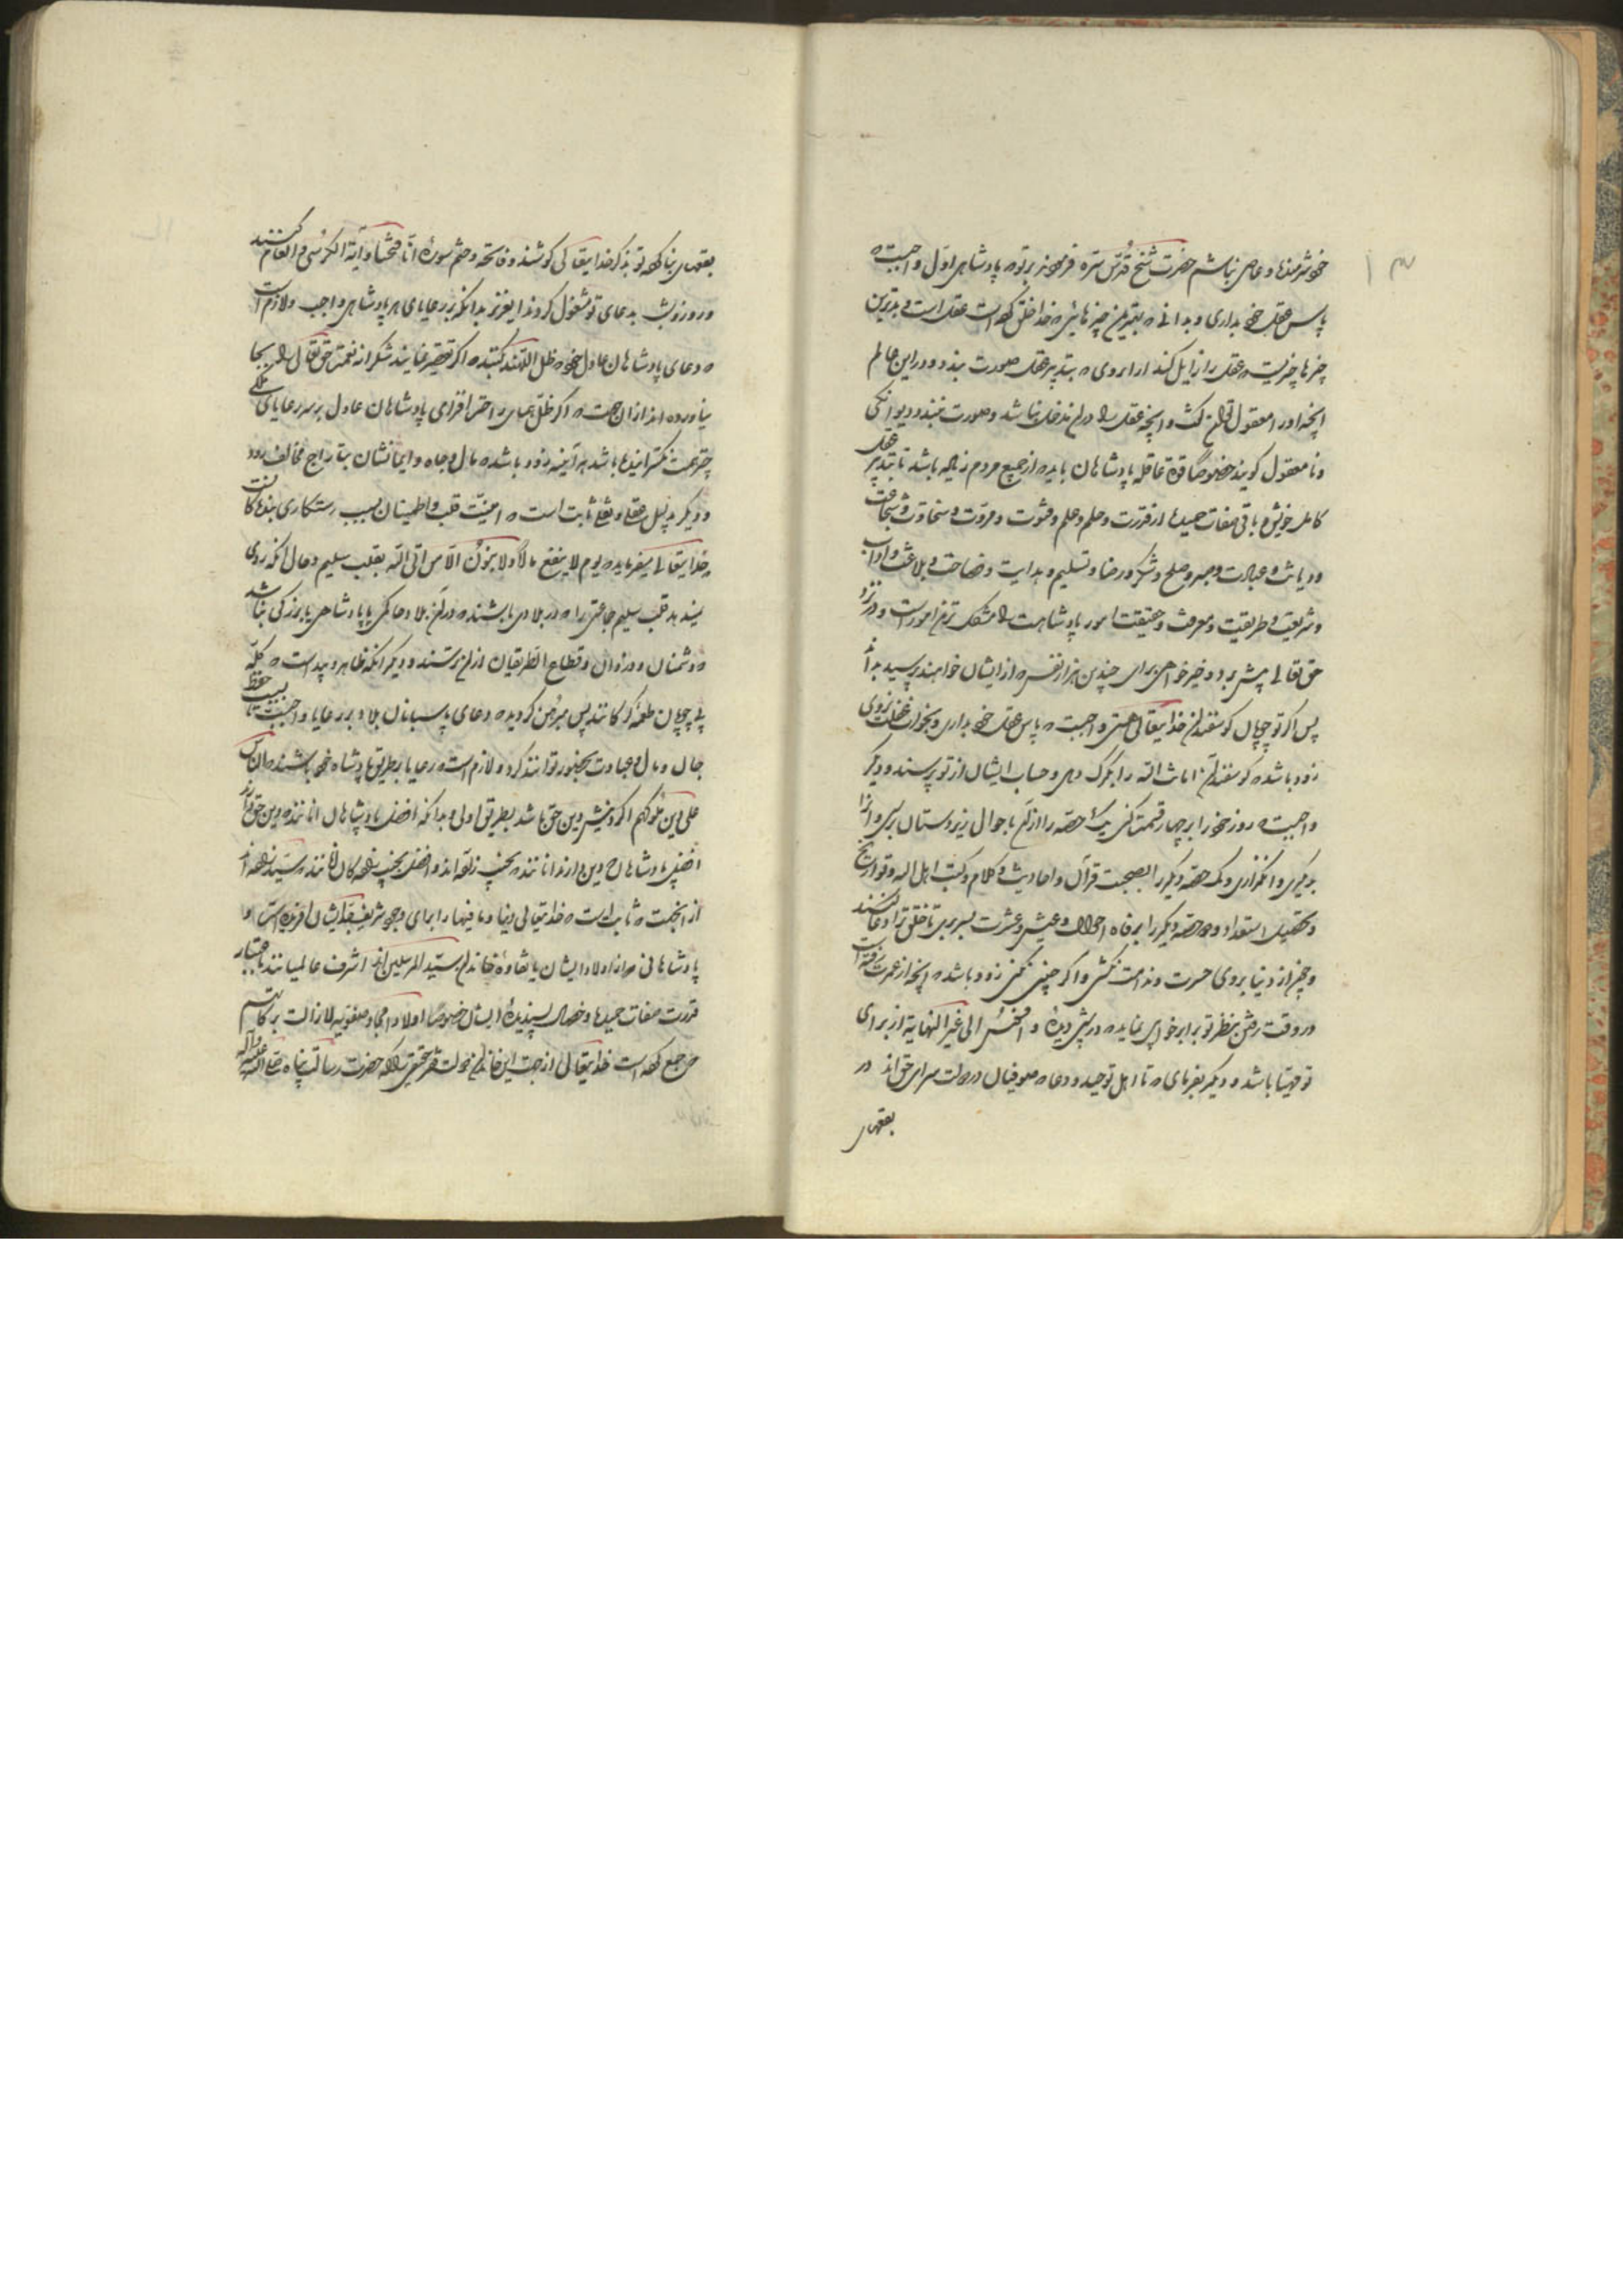 ۱۳
خود شرمنده و عاصی نباشم حضرت شیخ قدس سره فرمودند بر تو که پادشاهی اول واجبست که
پاس عقل خود بداری و بدانی که بهترین چیزهائی که خدا خلق کرده است عقل است و بدترین
چیزها چیزیست که عقل را زایل کند از امروی که بتدبیر عقل صورت بندد و در این عالم
آنچه او را معقول توان گفت و آنچه عقل را در آن مدخل نباشد و صورت نبندد دیوانگی
و نا معقول گویند خصوصاً قوة عاقله پادشاهان باید که از جمیع مردم زیاده باشد تا بتدبیر عقل
کامل خویش و باقی صفات حمیده از قدرت و حلم و علم و فتوت و مروت و سخاوت و شجاعت
و دیانت و عبادت و صبر و صلح و شکر و رضا و تسلیم و هدایت و فصاحت و بلاغت و آداب
و شریعت و طریقت و معرفت و حقیقت امور پادشاهست را مشکل ترین امور است و در نزد
حق تعالی پیش برد و خیرخواهی برای چندین هزار نفس که از ایشان خواهند پرسید بداند
پس اگر تو چوپان گوسفندان خدایتعالی هستی واجبست که پاس عقل خود بداری و بخواب غفلت نروی
زود باشد که گوسفندان امانت الله را بگرگ دهی و حساب ایشان از تو پرسند و دیگر
واجبست که روز خود را بر چهار قسمت کنی یک حصه را از آن باحوال زیردستان برسی و آنرا
بگیری وانگذاری و یک حصه دیگر را بصحبت قرآن و احادیث و کلام و کتب اهل الله و تواریخ
و تحصیل استعداد و دو حصه دیگر را بر فاه احوال و عیش و عشرت بسر بری تا خلق ترا دعا کنند
و چون از دنیا بروی حسرت و ندامت نکشی و اگر چنین نکنی زود باشد که آنچه از عمرت رفته است
در وقت رفتن بنظر تو برابر خوابی نماید که در شبی دیده و الی غیر النهایة از برای
تو مهیا باشد و دیگر بفرمای که تا اهل توحید و دعا که صوفیان در دولت سرای حق اند در
بقعهای
بقعهای بنا کرده تو بذکر خدایتعالی کوشند و فاتحه و ختم سورة انا فتحنا و آیة الکرسی و انعام کنند
و روز و شب بدعای تو مشغول گردند ای عزیز بدانکه بر رعایای هر پادشاهی واجب و لازم است
که دعای پادشاهان عادل خود که ظل اللهند کنند که اگر تقصیر نمایند شکرانه نعمت حق تعالی را بجا
نیاورده اند از ان جهت که اگر ظل همای احترافزای پادشاهان عادل بر سر رعایای ملکی
چتر نعمت نگسترانیده باشد هر آینه زود باشد که مال و جاه و ایمانشان بتاراج مخالف رود
و دیگر بدلیل عقلی و نقلی ثابت است که امنیت قلب و اطمینان بسبب رستگاری بنده کانست
خدایتعالی میفرماید که یوم لا ینفع مال و لا بنون الا من اتی الله بقلب سلیم و حال آنکه روی
نمیدهد قلب سلیم جماعتی را که در بلادی باشند که در آن بلاد حاکمی یا پادشاهی یا بزرگی نباشد
که دشمنان و دزدان و قطاع الطریقان از آن ترسند و دیگر آنکه ظاهر و پیداست که گله
بی چوپان طعمه گرگانند پس مبرهن گردید که دعای پاسبانان بلاد بر رعایا واجبست تا بسبب حفظ
جان و مال و عبادت بحضور توانند کرد و لازم است که رعایا بر طریق پادشاه خود باشند که الناس
علی دین ملوکهم اگر روشنش دین حق باشد بطریق اولی و بدانکه افضل پادشاهان آنانند که دین حق دارند
افضل پادشاهان دین دار آنانند که بحسب زاده اند و افضل بحسب زاده کان آنانند که سید زاده اند
از آنجهت که ثابت است که خدایتعالی دنیا و ما فیها را برای وجود شریف جد ایشان آفریده است و
پادشاهانی که از اولاد ایشان یا نقاوه خاندان سید المرسلین اند اشرف عالمیانند باعتبار
قدرت صفات حمیده و خصال پسندیده ایشان خصوصاً اولاد امجاد صفویه لا زالت برکاتهم
جمع کرده است خدایتعالی از جهت این خاندان دولت حضرت رسالت پناه صلی الله علیه و آله